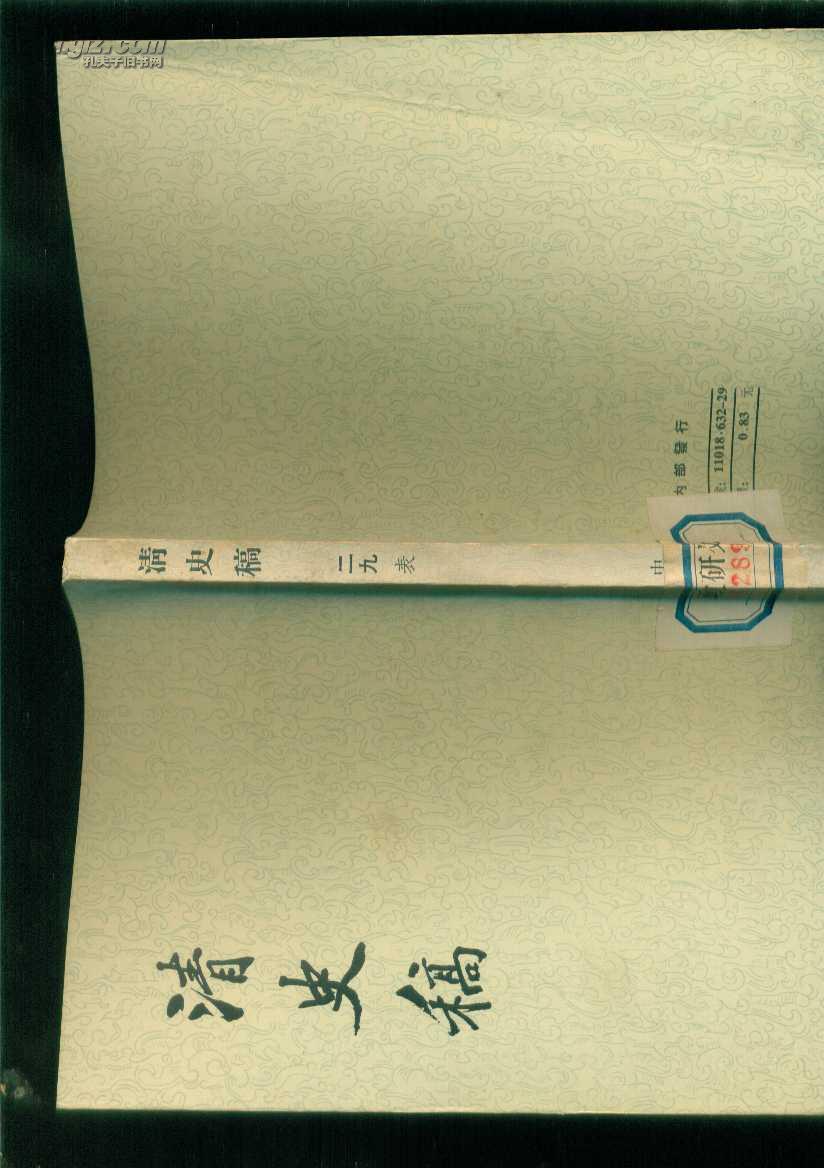 孔夫子旧书网
内部發行
11018·632-29
0.83 元
清史稿 二九 表
研
289
清史稿